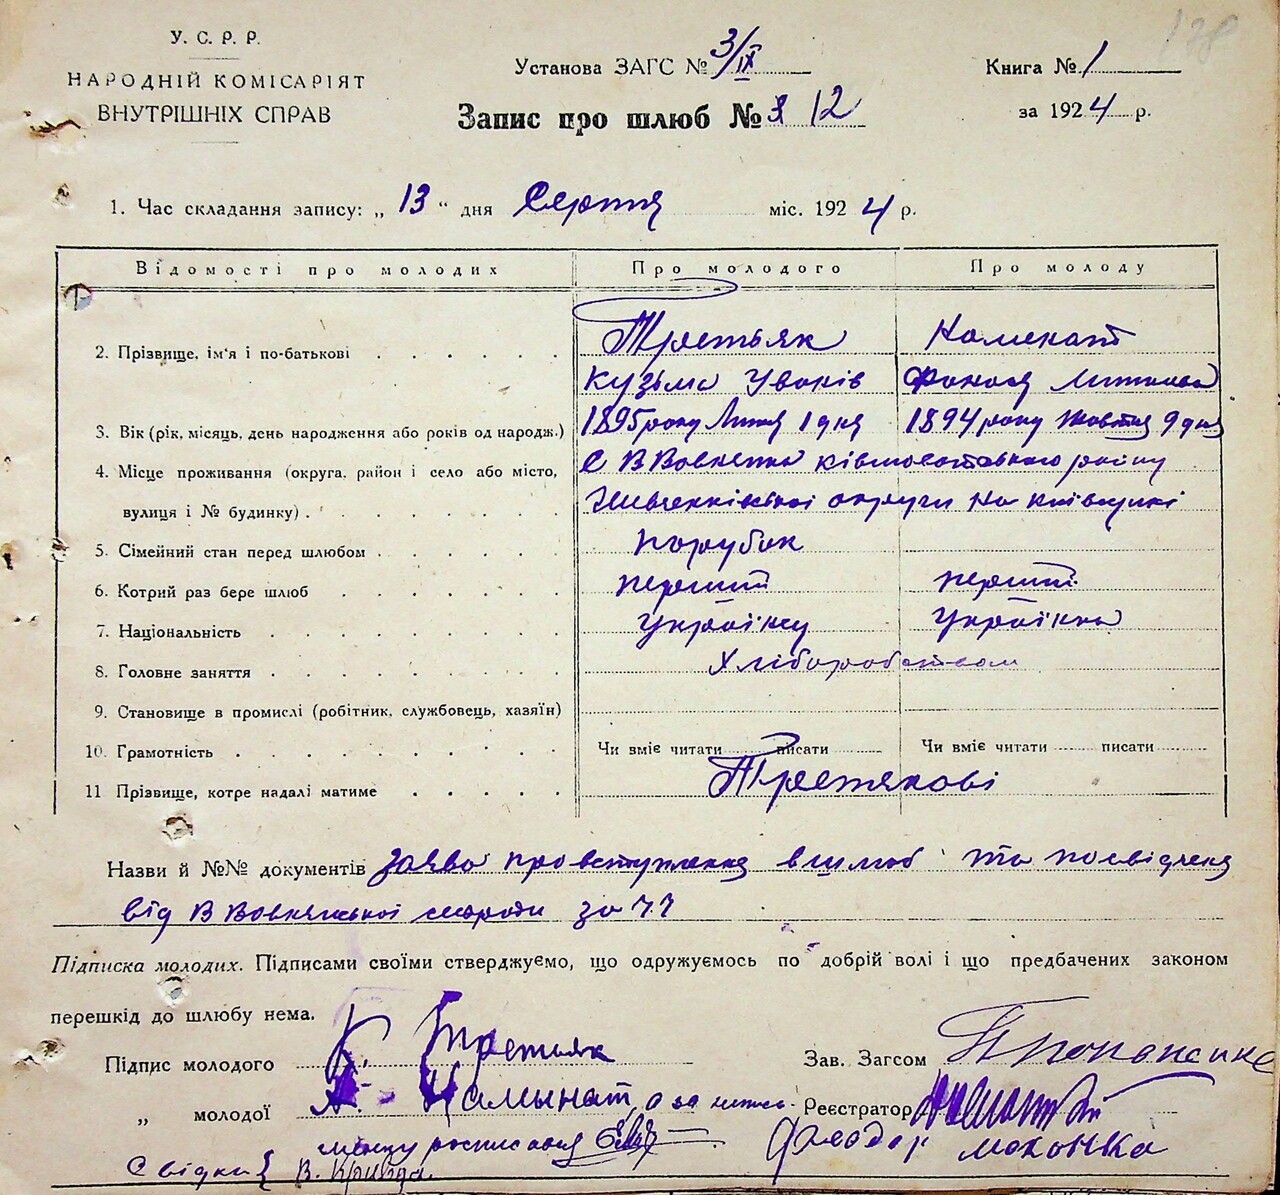 У.С.Р.Р.
НАРОДНІЙ КОМІСАРІЯТ
ВНУТРІШНІХ СПРАВ
Установа ЗАГС № 3/IX
Книга № 1
Запис про шлюб № 12
за 1924 р.
1. Час складання запису: „13“ дня Серпня міс. 1924 р.
Відомості про молодих Про молодого Про молоду
2. Прізвище, ім'я і по-батькові Третьяк
Кузьма
3. Вік (рік, місяць, день народження або років од народж.) 1895 року Липня 1 дня 1894 року Жовтня 9 дня
4. Місце проживання (округа, район і село або місто, с В Вовнянка району
вулиця і № будинку) Шевченківської округи на київщині
5. Сімейний стан перед шлюбом парубок
6. Котрий раз бере шлюб перший перший
7. Національність українец українка
8. Головне заняття Хліборобством
9. Становище в промислі (робітник, службовець, хазяїн)
10. Грамотність Чи вміє читати писати Чи вміє читати писати
11 Прізвище, котре надалі матиме Третякові
Назви й №№ документів заява про вступлення в шлюб та посвідченя
від В Вовнянської за ч.
Підписка молодих. Підписами своїми стверджуємо, що одружуємось по добрій волі і що предбачених законом
перешкід до шлюбу нема.
Підпис молодого К. Третьяк Зав. Загсом
„ молодої а за Реєстратор
росписався
Свідки В.